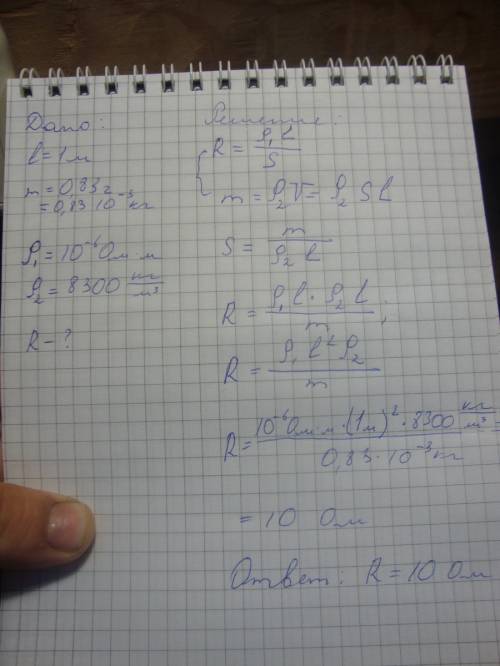 Дано:
l = 1 м
m = 0,83 г
= 0,83 10⁻³ кг
ρ₁ = 10⁻⁶ Ом м
ρ₂ = 8300 кг/м³
R - ?
Решение:
R = ρ₁ l / S
m = ρ₂ V = ρ₂ S l
S = m / ρ₂ l
R = ρ₁ l · ρ₂ l / m ;
R = ρ₁ l² ρ₂ / m
R = 10⁻⁶ Ом м · (1 м)² · 8300 кг/м³ / 0,83 · 10⁻³ кг =
= 10 Ом
Ответ: R = 10 Ом